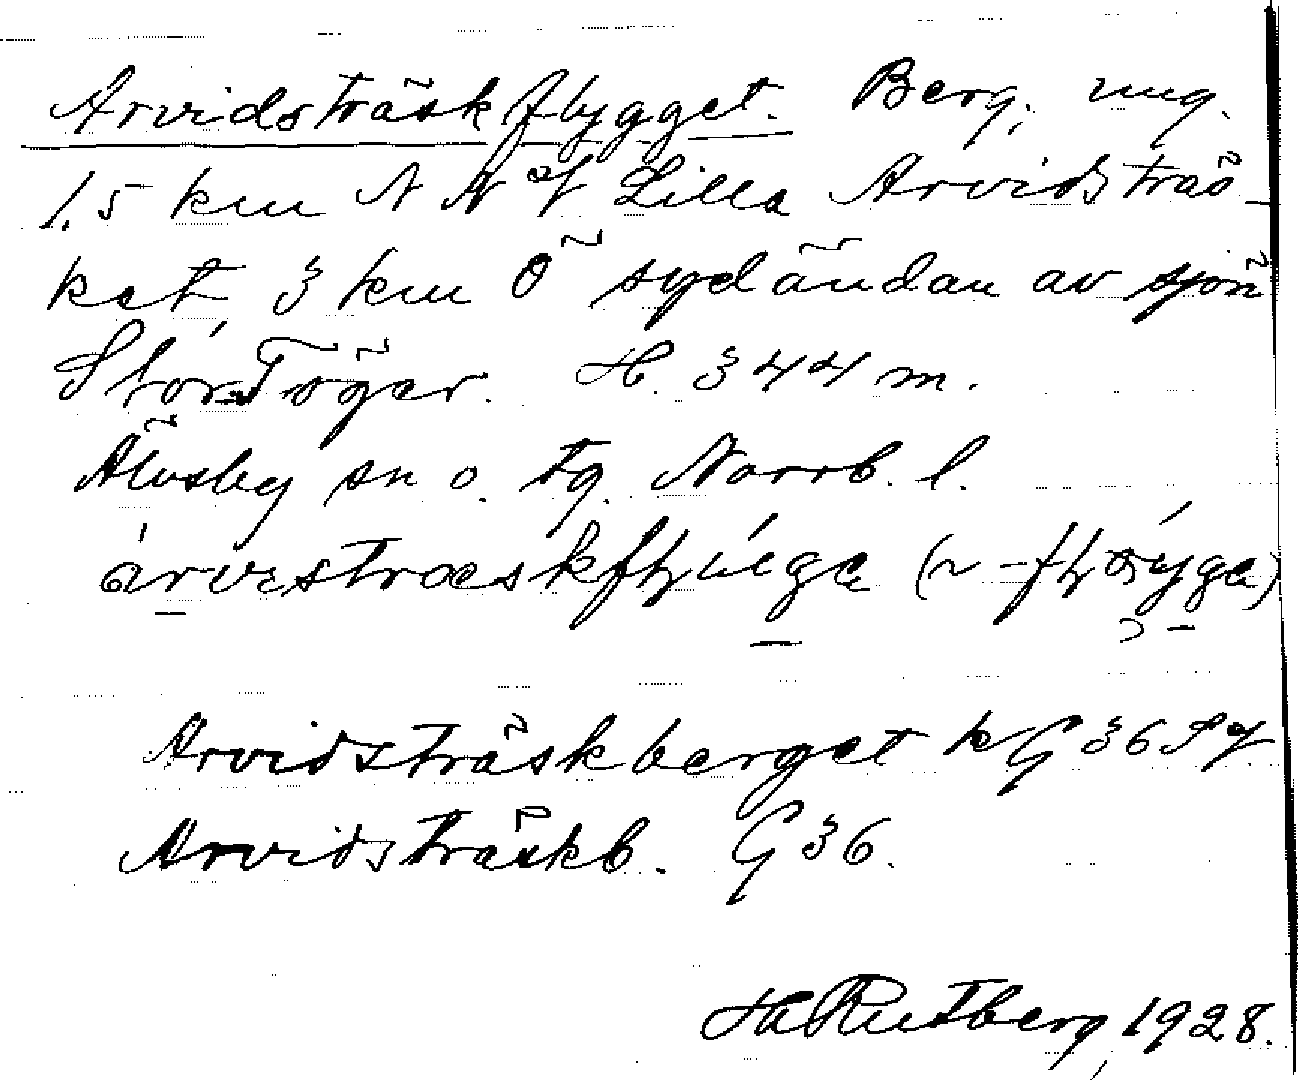 Arvidsträskflygget. Berg, ung.
1,5 km N N of Lilla Arvidsträs-
ket, 3 km Ö sydändan av sjön
Stor-Töger. H. 344 m.
Älvsby sn o. tg. Norrb. l.
Arvidsträskberget k G 36 SO
Arvidsträskb. G 36.
Rutberg, 1928.